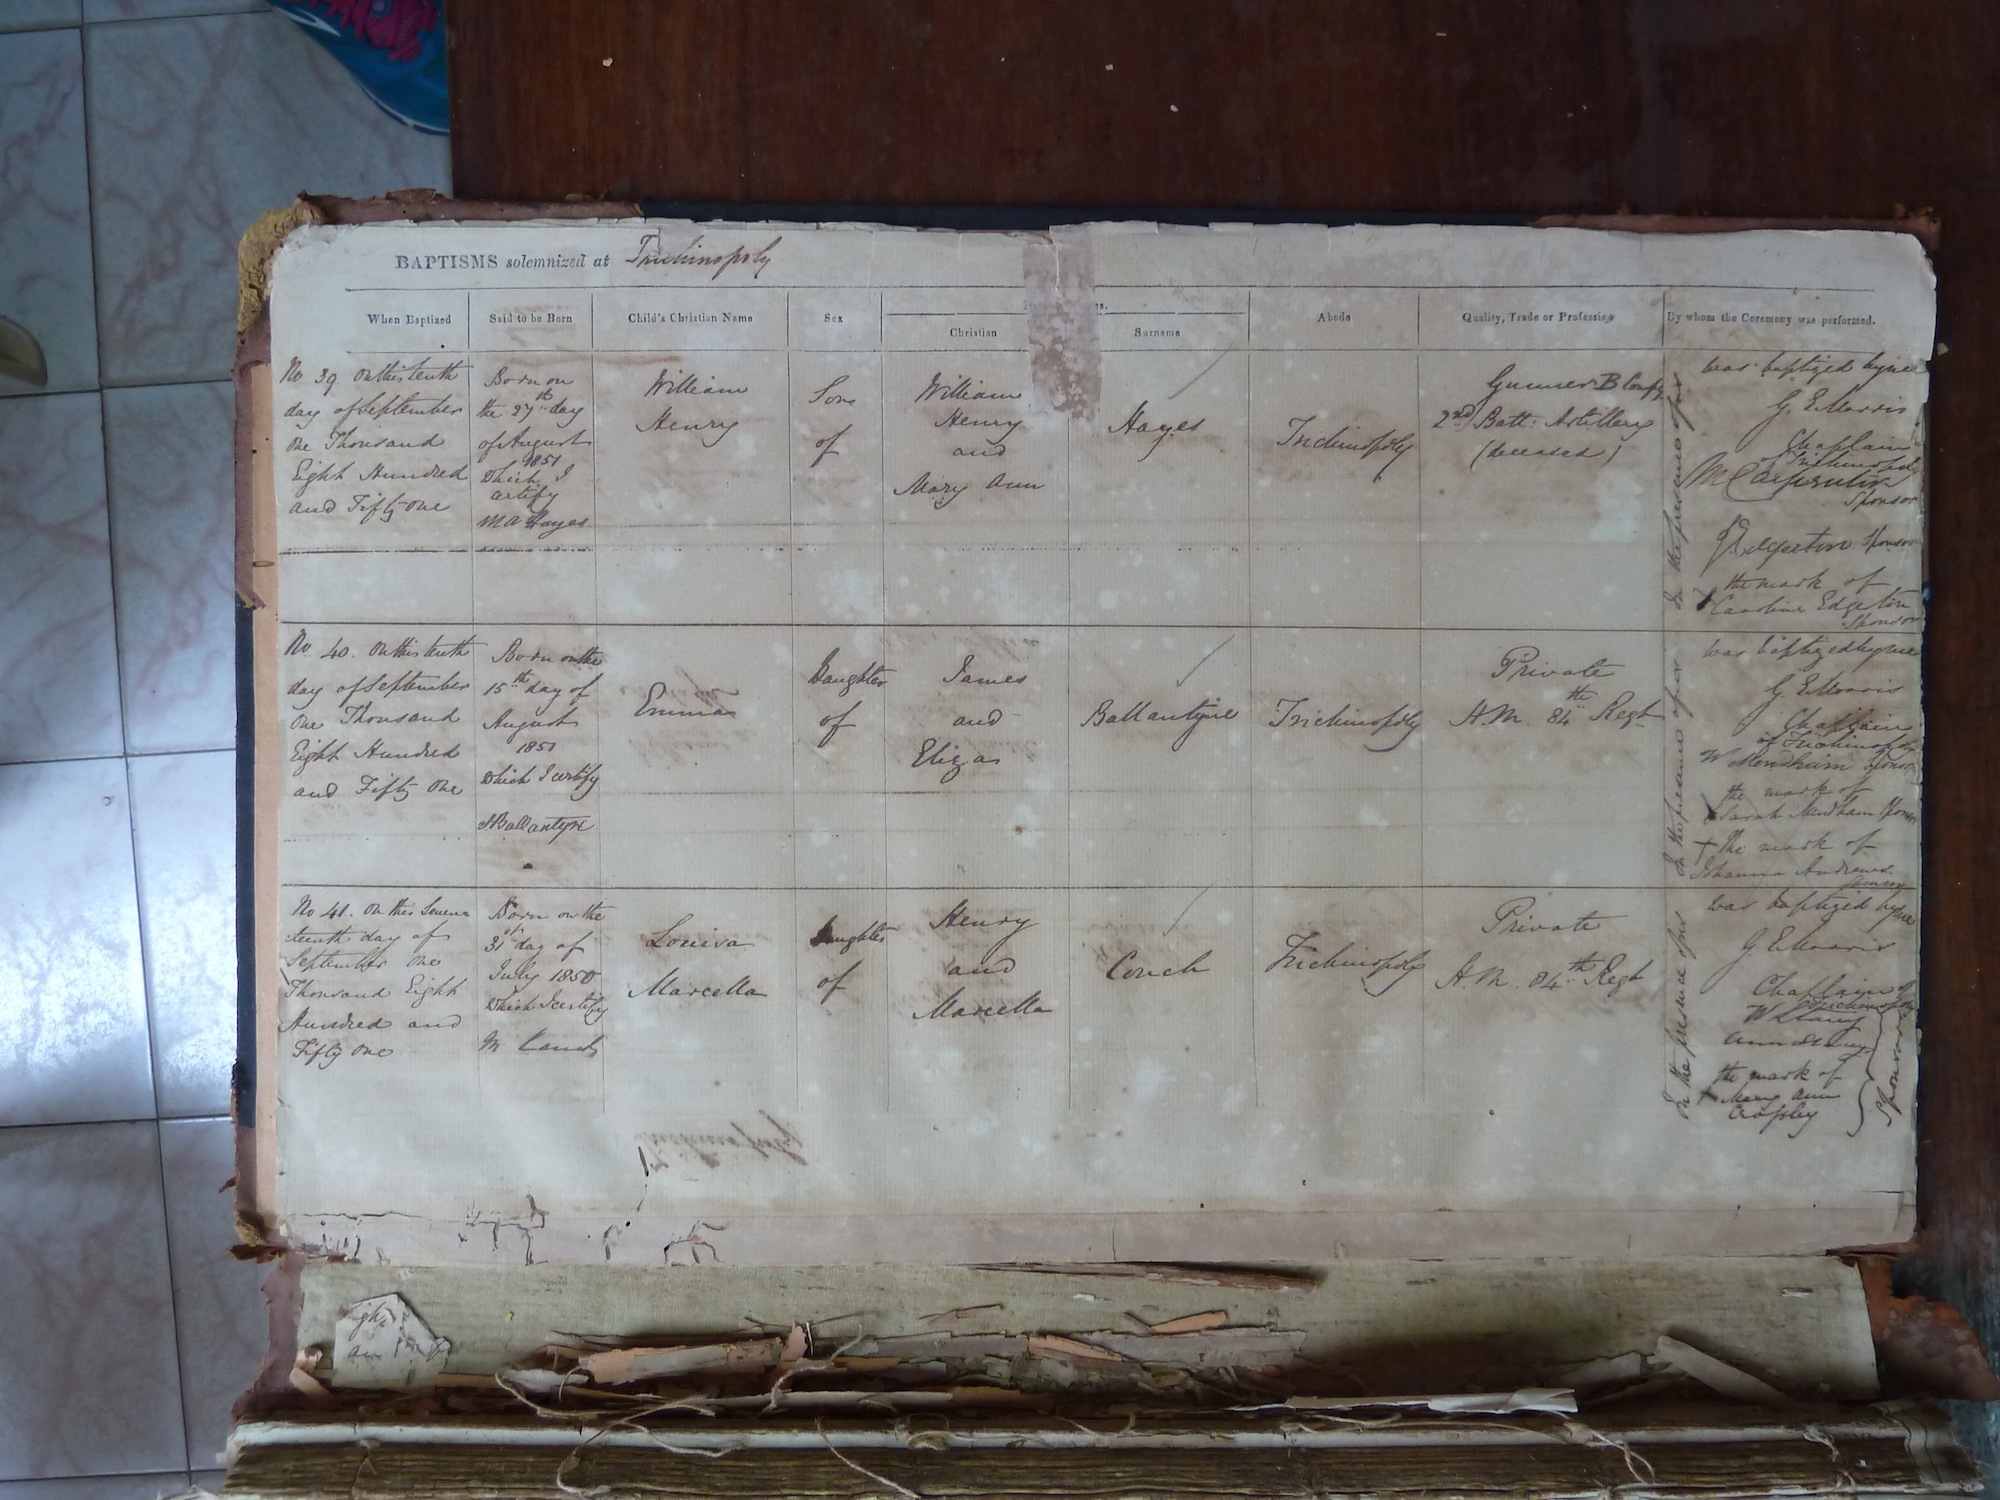 BAPTISMS solemnized at Trichinopoly
When Baptized
Said to be Born
Child's Christian Name
Sex
Christian
Surname
Abode
Quality, Trade or Profession
By whom the Ceremony was performed.
No 39 On this tenth
day of September
One Thousand
Eight Hundred
and Fifty One
Born on
the 27th day
of August
1851
which I
certify
M A Hayes
William
Henry
Son
of
William
Henry
and
Mary Ann
Hayes
Trichinopoly
Gunner B Compy
2nd Batt: Artillery
(deceased)
In the presence of us
was baptized by me
G. E. Morris
Chaplain
of Trichinopoly
M Carpenter
Sponsor
J Edgerton Sponsor
the mark of
Caroline Edgerton
Sponsor
No 40. On this tenth
day of September
One Thousand
Eight Hundred
and Fifty One
Born on the
15th day of
August
1851
which I certify
J Ballantyne
Emma
Daughter
of
James
and
Eliza
Ballantyne
Trichinopoly
Private
H.M. 84th Regt
In the presence of us
was baptized by me
G. E. Morris
Chaplain
of Trichinopoly
W Mendham Sponsor
the mark of
Sarah Mendham Sponsor
+ the mark of
Johanna Andrews
No 41. On this Seven
teenth day of
September One
Thousand Eight
Hundred and
Fifty One
Born on the
31st day of
July 1850
which I certify
M Couch
Louisa
Marcella
Daughter
of
Henry
and
Marcella
Couch
Trichinopoly
Private
H.M. 84th Regt
In the presence of us
was baptized by me
G. E. Morris
Chaplain of
Trichinopoly
the mark of
+ Mary Ann
Crossley
Sponsors